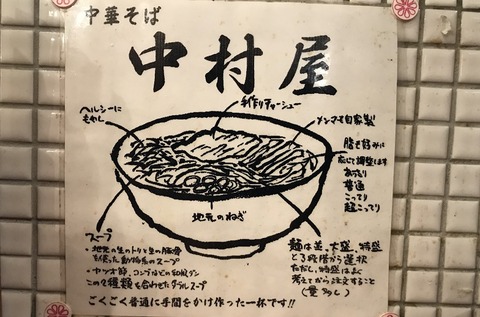 中華そば
中村屋
手作りチャーシュー
ヘルシーに
もやし
メンマも自家製
脂も好みに
応じて調整します
あっさり
普通
こってり
超こってり
地元のねぎ
スープ
・地元の生のトリと生の豚骨
を使った動物系のスープ
・カツオ節、コンブなどの和風ダシ
この2種類を合わせたダブルスープ
麺は並、大盛、特盛
と3段階から選択
ただし、特盛はよく
考えてから注文すること
ごくごく普通に手間をかけ作った一杯です!!